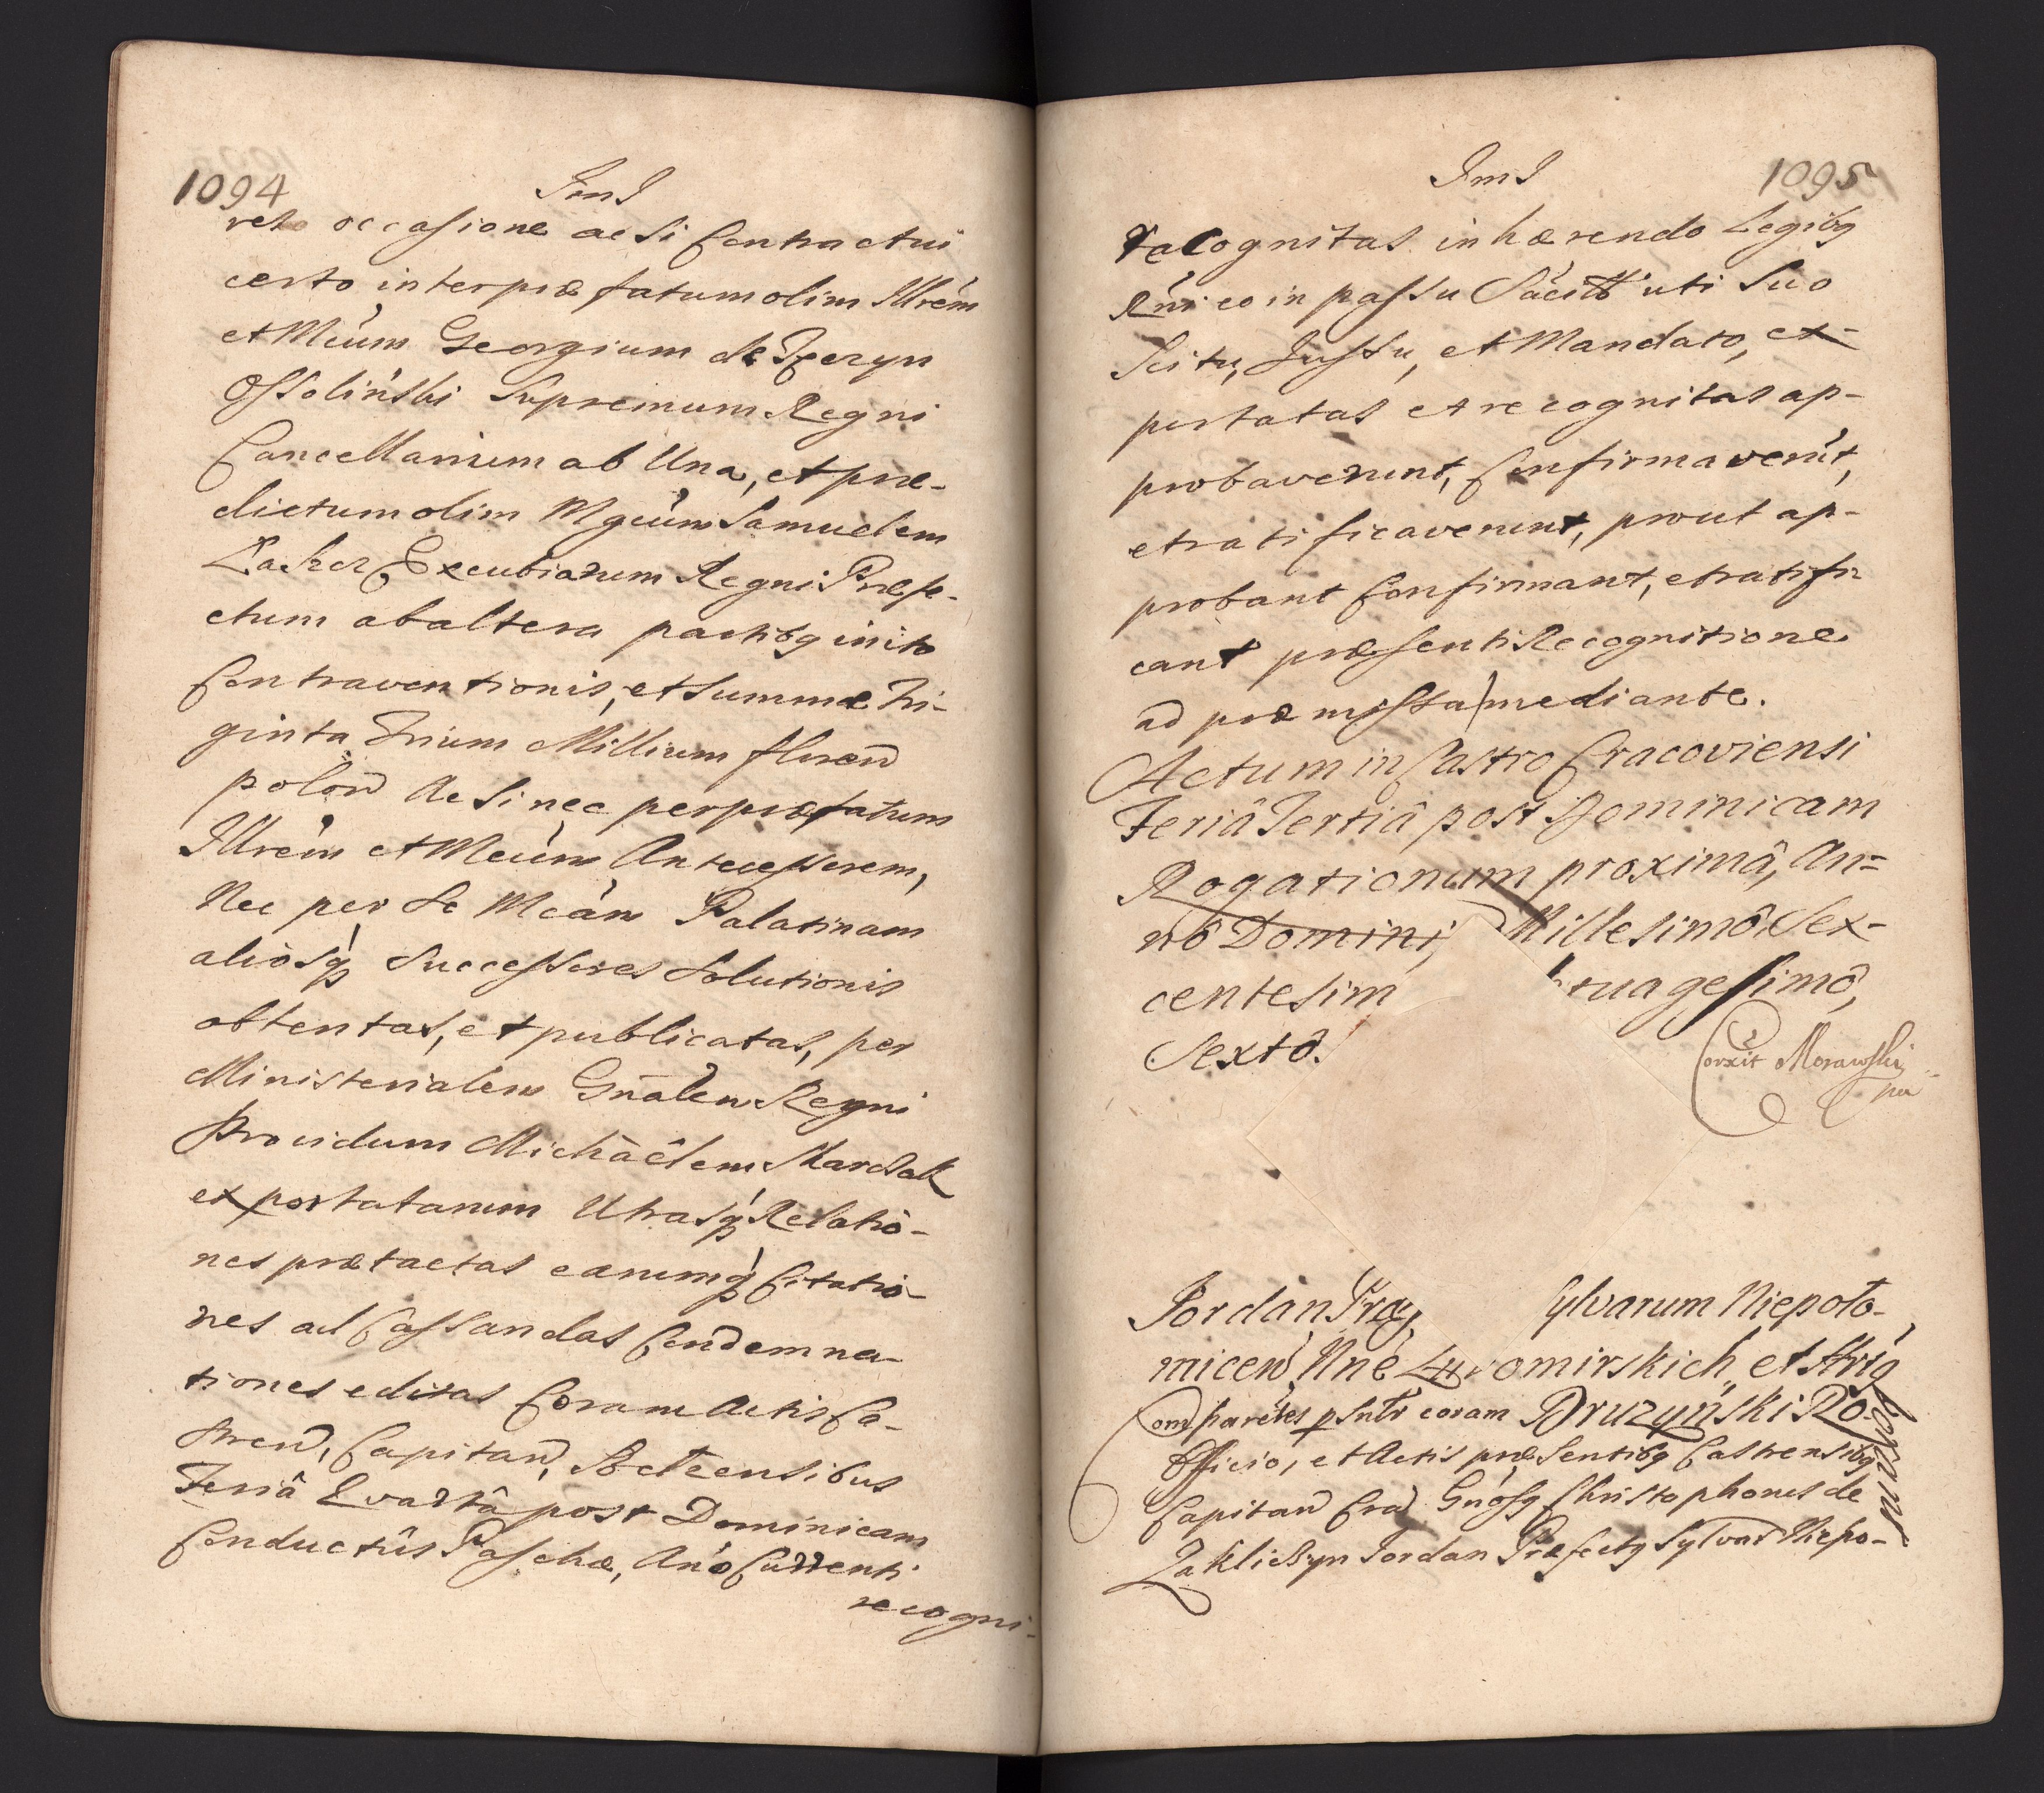 1094
JmJ
reto occasione ac si Contractui
certo inter præfatum olim Illrem
et Mcum Georgium de Tęczyn
Ossolinski Supremum Regni
Cancellarium ab Una, et præ-
dictum olim Mgcum Samuelem
Łaszcz Excubiarum Regni Præfe-
ctum ab altera partibq inito
Contraventionis, et Summæ Tri-
ginta Trium Millium floren
polon Ac si nec per præfatum
Illrem et Mcum Antecessorem,
Nec per Se Mcam Palatinam
aliosq Successores Solutionis
obtentas, et publicatas, per
Ministerialem Gnalem Regni
Providum Michäélem Marchak
exportatarum Utrasq Relatio-
nes prætactas earumq Citatio-
nes ad Cassandas Condemna-
tiones editas Coram Actis Ca-
stren, Capitan, Socteensibus
Feriâ Quartâ post Dominicam
Conductûs Paschæ, Ano Currenti
recogni-
JmJ
1095
recognitas inhærendo Legibq
Rni eo in passu Sacitt uti Suo
Scitu, Jussu, et Mandato, ex-
portatas et recognitas ap-
probaverunt, Confirmaverut,
et ratificaverunt, prout ap-
probant Confirmant, et ratifi-
cant præsenti Recognitione
ad præmissa mediante.
Actum in Castro Cracoviensi
Feriâ Tertiâ post Dominicam
Rogationum proximâ, An-
nô Domini, Millesimô Sex-
centesim tuagesimô,
Sextô.
Corxit Morawski
mp
Jordan, Præf, Sylvarum Niepoło-
micen, Nne Lubomirskich, et Strig
Druzyński Ro-
boratio
Comparētes psntr coram
Officio, et Actis præsentibq Castrensibq
Capitan Crac Gnosq Christophorus de
Zakliczyn Jordan Præfectq Sylvar Niepo-